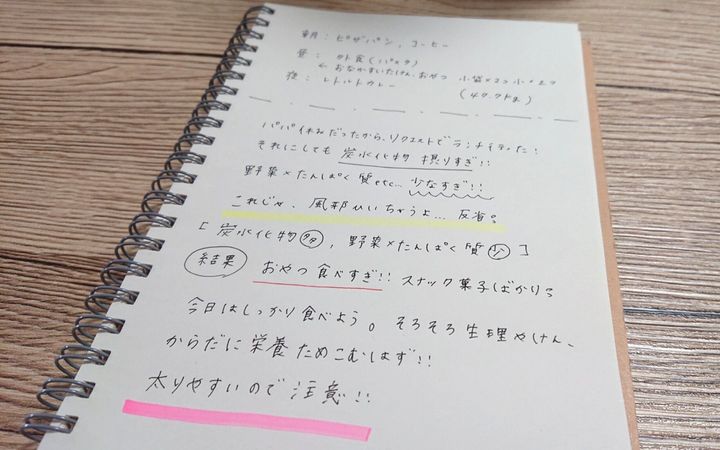 朝：ピザパン、コーヒー
昼：外食(パスタ)
← おなかすいたけん、おやつ 小袋×2
夜：レトルトカレー
(47.7kg)
パパ休みだったから、リクエストでランチ行った！
それにしても炭水化物摂りすぎ!!
野菜×たんぱく質etc… 少なすぎ!!
これじゃ、風邪ひいちゃうよ… 反省。
[ 炭水化物多 , 野菜×たんぱく質少 ]
結果 おやつ食べすぎ!! スナック菓子ばかり
今日はしっかり食べよう。そろそろ生理やけん、
からだに栄養ためこむはず!!
太りやすいので注意!!